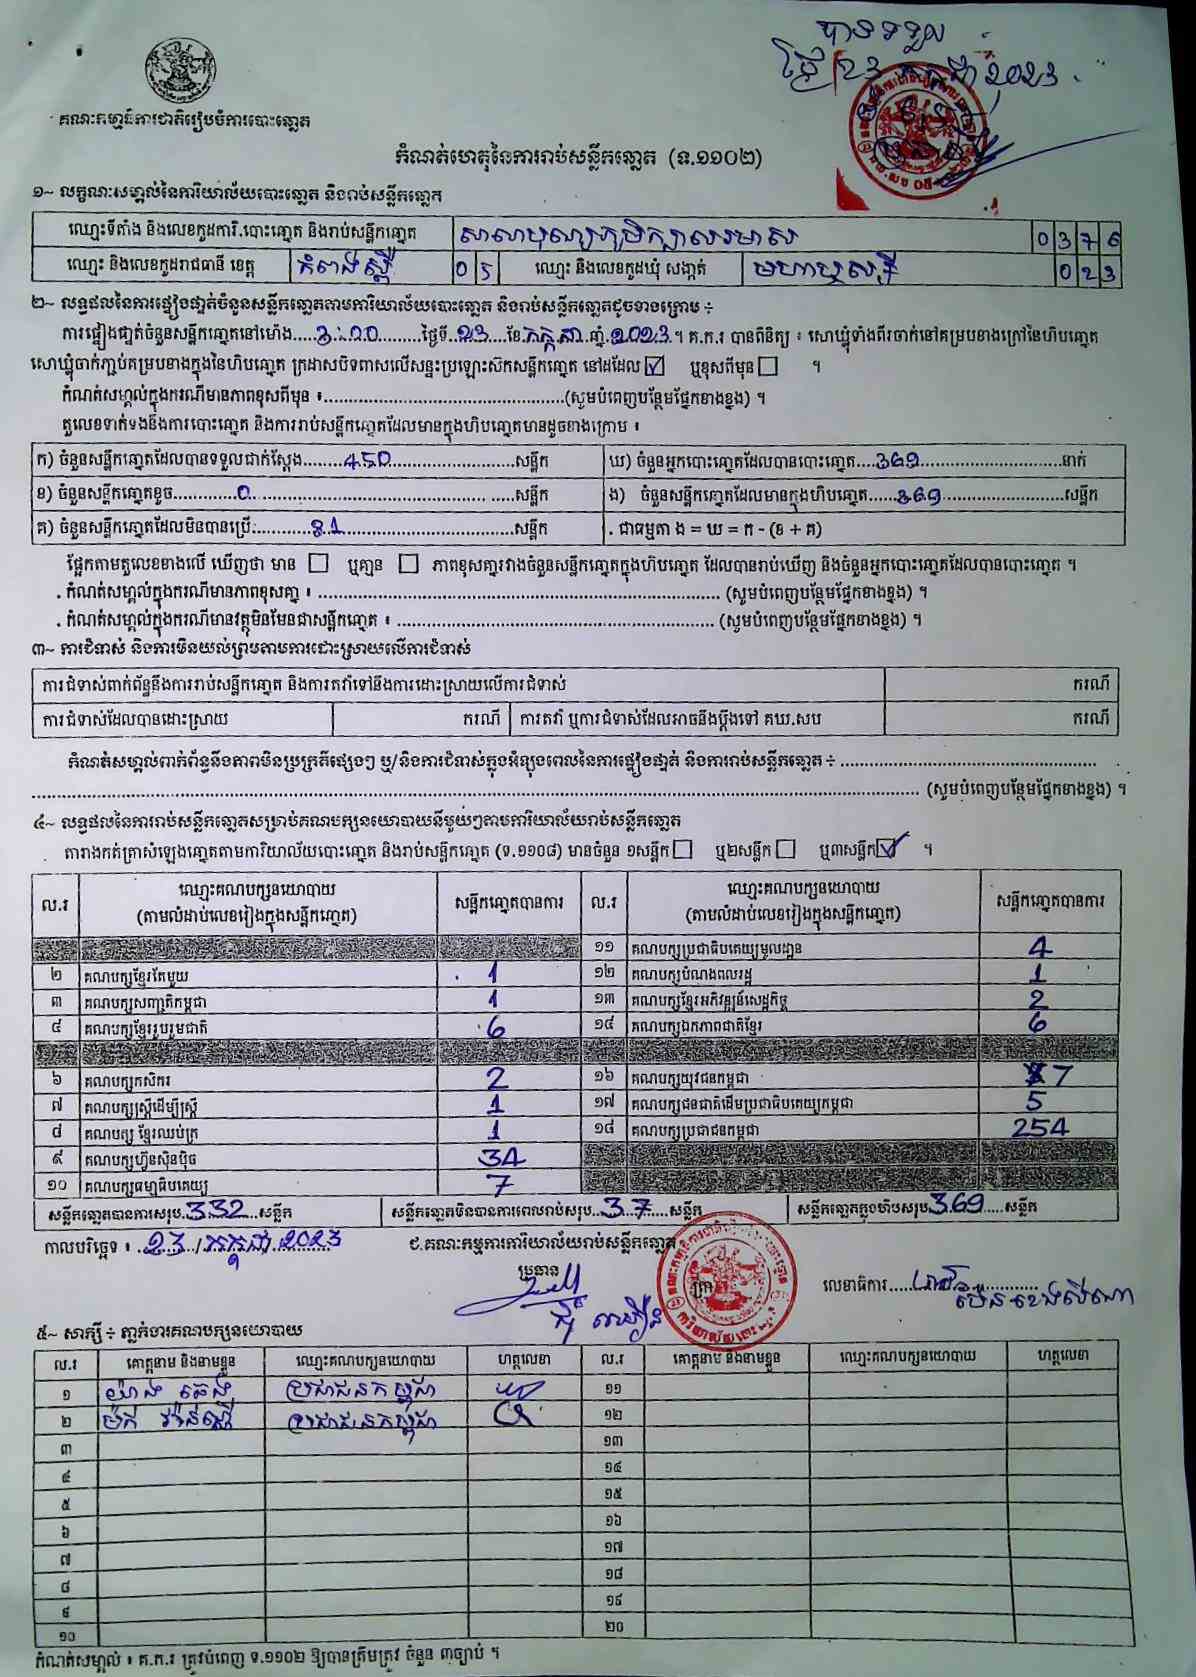 បានទទួល
ថ្ងៃ 23 កក្កដា 2023
គណៈកម្មាធិការជាតិរៀបចំការបោះឆ្នោត
កំណត់ហេតុនៃការរាប់សន្លឹកឆ្នោត (ទ.១១០២)
១~ លក្ខណៈសម្គាល់នៃការិយាល័យបោះឆ្នោត និងរាប់សន្លឹកឆ្នោត
ឈ្មោះទីតាំង និងលេខកូដការិ.បោះឆ្នោត និងរាប់សន្លឹកឆ្នោត 0376
ឈ្មោះ និងលេខកូដរាជធានី ខេត្ត កំពង់ស្ពឺ 05 ឈ្មោះ និងលេខកូដឃុំ សង្កាត់ មហាឫស្សី 023
២~ លទ្ធផលនៃការផ្ទៀងផ្ទាត់ចំនួនសន្លឹកឆ្នោតតាមការិយាល័យបោះឆ្នោត និងរាប់សន្លឹកឆ្នោតដូចខាងក្រោម ÷
ការផ្ទៀងផ្ទាត់ចំនួនសន្លឹកឆ្នោតនៅម៉ោង.....3:00.........ថ្ងៃទី..23....ខែ.កក្កដា..ឆ្នាំ.2023.។ គ.ក.រ បានពិនិត្យ ៖ សោឃ្លុំទាំងពីរចាក់នៅគម្របខាងក្រៅនៃហិបឆ្នោត
សោឃ្លុំចាក់ភ្ជាប់គម្របខាងក្នុងនៃហិបឆ្នោត ក្រដាសបិទពាសលើសន្ទះប្រឡោះស៊កសន្លឹកឆ្នោត នៅដដែល ☑ ឬខុសពីមុន ☐ ។
កំណត់សម្គាល់ក្នុងករណីមានភាពខុសពីមុន ៖..............................................(សូមបំពេញបន្ថែមផ្នែកខាងខ្នង) ។
តួលេខទាក់ទងនឹងការបោះឆ្នោត និងការរាប់សន្លឹកឆ្នោតដែលមានក្នុងហិបឆ្នោតមានដូចខាងក្រោម ៖
ក) ចំនួនសន្លឹកឆ្នោតដែលបានទទួលជាក់ស្តែង........450........................សន្លឹក ឃ) ចំនួនអ្នកបោះឆ្នោតដែលបានបោះឆ្នោត....369...........................នាក់
ខ) ចំនួនសន្លឹកឆ្នោតខូច.............0............................................សន្លឹក ង) ចំនួនសន្លឹកឆ្នោតដែលមានក្នុងហិបឆ្នោត......369.......................សន្លឹក
គ) ចំនួនសន្លឹកឆ្នោតដែលមិនបានប្រើ............81................................សន្លឹក . ជាធម្មតា ង = ឃ = ក - (ខ + គ)
ផ្អែកតាមតួលេខខាងលើ ឃើញថា មាន ☐ ឬគ្មាន ☐ ភាពខុសគ្នារវាងចំនួនសន្លឹកឆ្នោតក្នុងហិបឆ្នោត ដែលបានរាប់ឃើញ និងចំនួនអ្នកបោះឆ្នោតដែលបានបោះឆ្នោត ។
. កំណត់សម្គាល់ក្នុងករណីមានភាពខុសគ្នា ៖ ............................................................ (សូមបំពេញបន្ថែមផ្នែកខាងខ្នង) ។
. កំណត់សម្គាល់ក្នុងករណីមានវត្ថុមិនមែនជាសន្លឹកឆ្នោត ៖ ............................................. (សូមបំពេញបន្ថែមផ្នែកខាងខ្នង) ។
៣~ ការជំទាស់ និងការមិនយល់ព្រមតាមការដោះស្រាយលើការជំទាស់
ការជំទាស់ពាក់ព័ន្ធនឹងការរាប់សន្លឹកឆ្នោត និងការតវ៉ាទៅនឹងការដោះស្រាយលើការជំទាស់ ករណី
ការជំទាស់ដែលបានដោះស្រាយ ករណី ការតវ៉ា ឬការជំទាស់ដែលអាចនឹងប្តឹងទៅ គឃ.សប ករណី
កំណត់សម្គាល់ពាក់ព័ន្ធនឹងភាពមិនប្រក្រតីផ្សេងៗ ឬ/និងការជំទាស់ក្នុងអំឡុងពេលនៃការផ្ទៀងផ្ទាត់ និងការរាប់សន្លឹកឆ្នោត ÷ ..................................
............................................................ (សូមបំពេញបន្ថែមផ្នែកខាងខ្នង) ។
៤~ លទ្ធផលនៃការរាប់សន្លឹកឆ្នោតសម្រាប់គណបក្សនយោបាយនីមួយៗតាមការិយាល័យរាប់សន្លឹកឆ្នោត
តារាងកត់ត្រាសំឡេងឆ្នោតតាមការិយាល័យបោះឆ្នោត និងរាប់សន្លឹកឆ្នោត (ទ.១១០៨) មានចំនួន ១សន្លឹក ☐ ឬ២សន្លឹក ☐ ឬ៣សន្លឹក ☑ ។
ល.រ ឈ្មោះគណបក្សនយោបាយ (តាមលំដាប់លេខរៀងក្នុងសន្លឹកឆ្នោត) សន្លឹកឆ្នោតបានការ ល.រ ឈ្មោះគណបក្សនយោបាយ (តាមលំដាប់លេខរៀងក្នុងសន្លឹកឆ្នោត) សន្លឹកឆ្នោតបានការ
១១ គណបក្សប្រជាធិបតេយ្យមូលដ្ឋាន 4
២ គណបក្សខ្មែរតែមួយ 1 ១២ គណបក្សបំណងពលរដ្ឋ 1
៣ គណបក្សសញ្ជាតិកម្ពុជា 1 ១៣ គណបក្សខ្មែរអភិវឌ្ឍន៍សេដ្ឋកិច្ច 2
៤ គណបក្សខ្មែររួបរួមជាតិ 6 ១៤ គណបក្សឯកភាពជាតិខ្មែរ 6
៦ គណបក្សកសិករ 2 ១៦ គណបក្សយុវជនកម្ពុជា 7
៧ គណបក្សស្ត្រីដើម្បីស្ត្រី 1 ១៧ គណបក្សជនជាតិដើមប្រជាធិបតេយ្យកម្ពុជា 5
៨ គណបក្ស ខ្មែរឈប់ក្រ 1 ១៨ គណបក្សប្រជាជនកម្ពុជា 254
៩ គណបក្សហ៊្វុនស៊ិនប៉ិច 34
១០ គណបក្សធម្មាធិបតេយ្យ 7
សន្លឹកឆ្នោតបានការសរុប..332.....សន្លឹក សន្លឹកឆ្នោតមិនបានការពេលរាប់សរុប..37......សន្លឹក សន្លឹកឆ្នោតក្នុងហិបសរុប.369.....សន្លឹក
កាលបរិច្ឆេទ ៖ ..23../កក្កដា 2023 ជ.គណៈកម្មការការិយាល័យរាប់សន្លឹកឆ្នោត
ប្រធាន ត្រា លេខាធិការ
៥~ សាក្សី ÷ ភ្នាក់ងារគណបក្សនយោបាយ
ល.រ គោត្តនាម និងនាមខ្លួន ឈ្មោះគណបក្សនយោបាយ ហត្ថលេខា ល.រ គោត្តនាម និងនាមខ្លួន ឈ្មោះគណបក្សនយោបាយ ហត្ថលេខា
១ យ៉ាង ឆេង ប្រជាជនកម្ពុជា ១១
២ ម៉ក់ ប្រជាជនកម្ពុជា ១២
៣ ១៣
៤ ១៤
៥ ១៥
៦ ១៦
៧ ១៧
៨ ១៨
៩ ១៩
១០ ២០
កំណត់សម្គាល់ ៖ គ.ក.រ ត្រូវបំពេញ ទ.១១០២ ឱ្យបានត្រឹមត្រូវ ចំនួន ៣ច្បាប់ ។